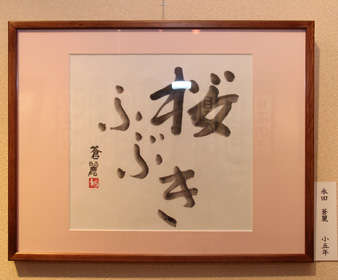 桜
ふぶき
蒼麗
永田 蒼麗 小五年